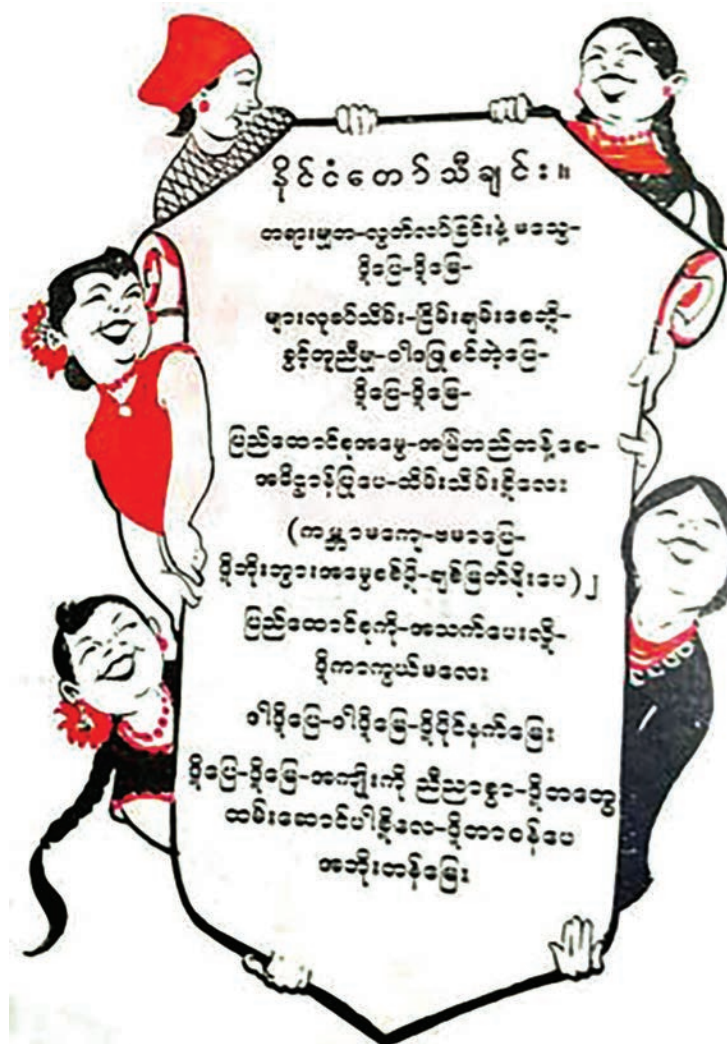 နိုင်ငံတော်သီချင်း။
တရားမျှတ-လွတ်လပ်ခြင်းနဲ့ မသွေ-
ဒို့ပြေ-ဒို့မြေ-
များလူခပ်သိမ်း-ငြိမ်းချမ်းစေဘို့-
ခွင့်တူညီမျှ-ဝါဒဖြူစင်တဲ့ပြေ-
ဒို့ပြေ-ဒို့မြေ-
ပြည်ထောင်စုအမွေ-အမြဲတည်တန့်စေ-
အဓိဋ္ဌာန်ပြုပေ-ထိမ်းသိမ်းစို့လေး
(ကမ္ဘာမကျေ-ဗမာပြေ-
ဒို့ဘိုးဘွားအမွေစစ်မို့-ချစ်မြတ်နိုးပေ)၂
ပြည်ထောင်စုကို-အသက်ပေးလို့-
ဒို့ကာကွယ်မလေး
ဒါဒို့ပြေ-ဒါဒို့မြေ-ဒို့ပိုင်နက်မြေး
ဒို့ပြေ-ဒို့မြေ-အကျိုးကို ညီညာစွာ-ဒို့တတွေ
ထမ်းဆောင်ပါစို့လေ-ဒို့တာဝန်ပေ
အဘိုးတန်မြေး